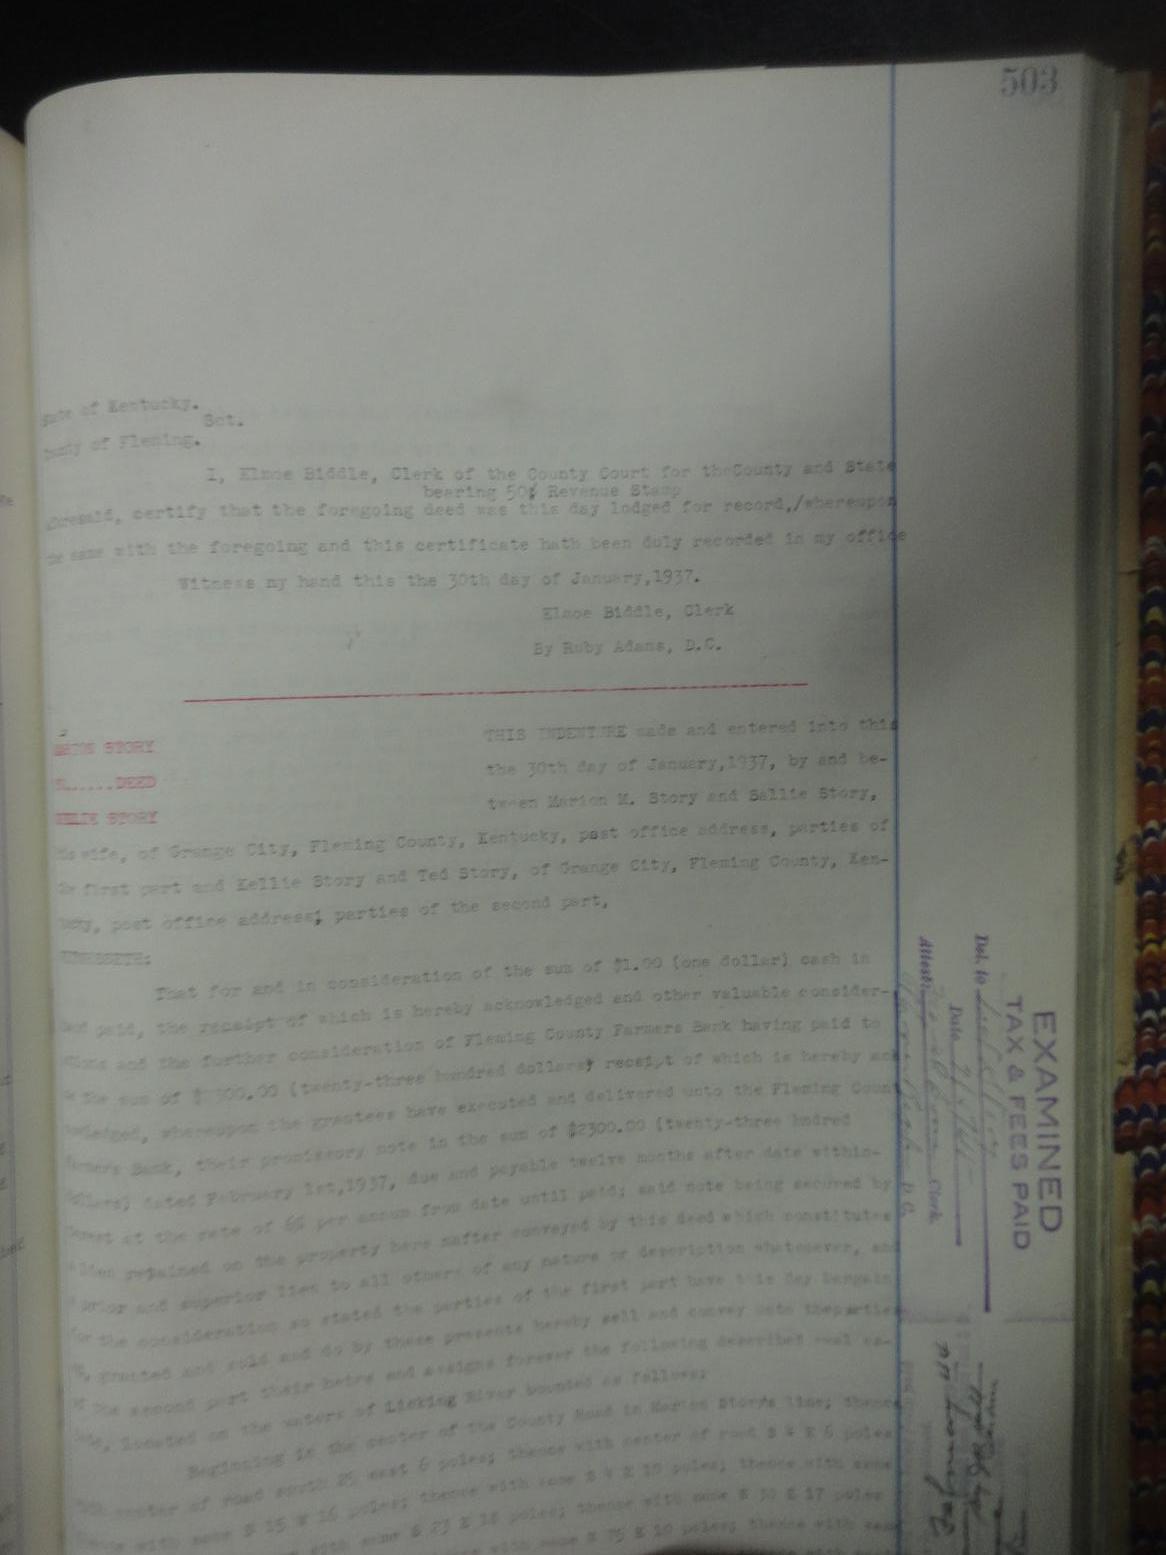 503
State of Kentucky.
Sct.
County of Fleming.
I, Elmoe Biddle, Clerk of the County Court for theCounty and State
bearing 50¢ Revenue Stamp
aforesaid, certify that the foregoing deed was this day lodged for record,/whereupon
the same with the foregoing and this certificate hath been duly recorded in my office
Witness my hand this the 30th day of January,1937.
Elmoe Biddle, Clerk
By Ruby Adams, D.C.
MARION STORY
DEED
KELLIE STORY
THIS INDENTURE made and entered into this
the 30th day of January,1937, by and be-
tween Marion M. Story and Sallie Story,
his wife, of Grange City, Fleming County, Kentucky, post office address, parties of
the first part and Kellie Story and Ted Story, of Grange City, Fleming County, Ken-
tucky, post office address; parties of the second part,
WITNESSETH:
That for and in consideration of the sum of $1.00 (one dollar) cash in
hand paid, the receipt of which is hereby acknowledged and other valuable consider-
ations and the further consideration of Fleming County Farmers Bank having paid to
the sum of $2300.00 (twenty-three hundred dollars) receipt of which is hereby ack
nowledged, whereupon the grantees have executed and delivered unto the Fleming Coun
Farmers Bank, their promissory note in the sum of $2300.00 (twenty-three hndred
dollars) dated February 1st,1937, due and payable twelve months after date within-
terest at the rate of 6% per annum from date until paid; said note being secured by
a lien retained on the property here nafter conveyed by this deed which constitutes
a prior and superior lien to all others of any nature or description whatsoever, and
for the consideration so stated the parties of the first part have this day bargain
ed, granted and sold and do by these presents hereby sell and convey unto theparties
of the second part their heirs and assigns forever the following described real es-
tate, located on the waters of Licking River bounded as follows:
Beginning in the center of the County Road in Marion Story's line; thence
with center of road south 25 east 6 poles; thence with center of road S 4 E 6 poles
thence with same S 15 W 16 poles; thence with same S 4 E 10 poles; thence with same
with same S 23 E 18 poles; thence with same S 30 E 17 poles
with same S 75 E 10 poles; thence with same
EXAMINED
TAX & FEES PAID
Del. to
Date
Clerk
Attest:
D.C.